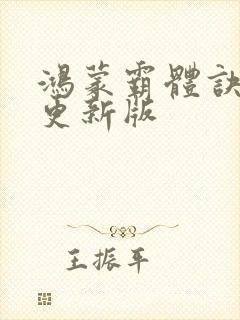 鴻蒙霸體訣
更新版
王振平